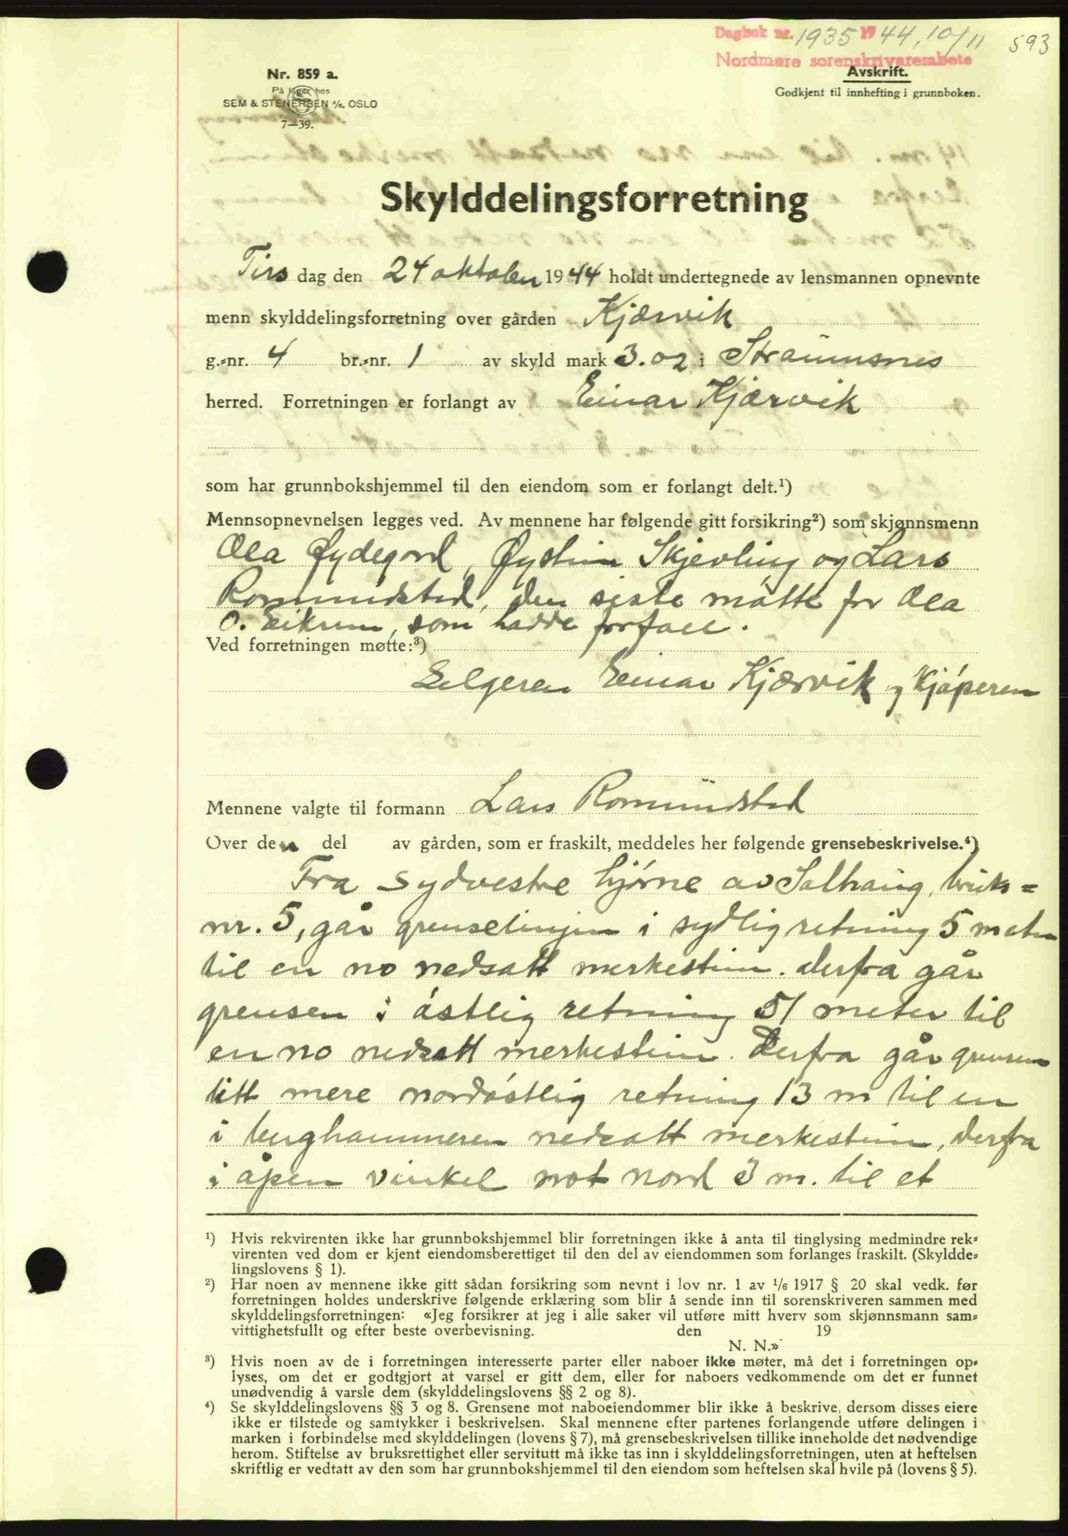 Dagbok nr. 1935 1944, 10/11
593
Nordmøre sorenskrivarembete
Nr. 859 a.
På lager hos
SEM & STENERSEN A/S, OSLO
7—39.
Avskrift.
Godkjent til innhefting i grunnboken.
Skylddelingsforretning
Tirs dag den 24 oktober 1944 holdt undertegnede av lensmannen opnevnte
menn skylddelingsforretning over gården Kjærvik
g.-nr. 4 br.-nr. 1 av skyld mark 3.02 i Straumsnes
herred. Forretningen er forlangt av Einar Kjærvik
som har grunnbokshjemmel til den eiendom som er forlangt delt.¹)
Mennsopnevnelsen legges ved. Av mennene har følgende gitt forsikring²) som skjønnsmenn
Ola Øydegard, Øystein Skjevling og Lars
Romundstad, den siste møtte for Ola
O. Eikrem, som hadde forfall.
Ved forretningen møtte:³)
Selgeren Einar Kjærvik og kjøperen
Mennene valgte til formann Lars Romundstad
Over den del av gården, som er fraskilt, meddeles her følgende grensebeskrivelse.⁴)
Fra sydvestre hjørne av Solhaug, bruks=
nr. 5, går grenselinjen i sydlig retning 5 meter
til en no nedsatt merkestein. Derfra går
grensen i østlig retning 51 meter til
en no nedsatt merkestein. Derfra går grensen
litt mere nordøstlig retning 13 m til en
i berghammeren nedsatt merkestein, derfra
i åpen vinkel mot nord 3 m. til et
¹) Hvis rekvirenten ikke har grunnbokshjemmel blir forretningen ikke å anta til tinglysing medmindre rek-
virenten ved dom er kjent eiendomsberettiget til den del av eiendommen som forlanges fraskilt. (Skyldde-
lingslovens § 1).
²) Har noen av mennene ikke gitt sådan forsikring som nevnt i lov nr. 1 av 1/6 1917 § 20 skal vedk. før
forretningen holdes underskrive følgende erklæring som blir å sende inn til sorenskriveren sammen med
skylddelingsforretningen: «Jeg forsikrer at jeg i alle saker vil utføre mitt hverv som skjønnsmann sam-
vittighetsfullt og efter beste overbevisning. den 19
N. N.»
³) Hvis noen av de i forretningen interesserte parter eller naboer ikke møter, må det i forretningen op-
lyses, om det er godtgjort at varsel er gitt dem, eller for naboers vedkommende om det er funnet
unødvendig å varsle dem (skylddelingslovens §§ 2 og 8).
⁴) Se skylddelingslovens §§ 3 og 8. Grensene mot naboeiendommer blir ikke å beskrive, dersom disses eiere
ikke er tilstede og samtykker i beskrivelsen. Skal mennene efter partenes forlangende utføre delingen i
marken i forbindelse med skylddelingen (lovens § 7), må grensebeskrivelsen tillike inneholde det nødvendige
herom. Stiftelse av bruksrettighet eller servitutt må ikke tas inn i skylddelingsforretningen, uten at heftelsen
skriftlig er vedtatt av den som har grunnbokshjemmel til den eiendom som heftelsen skal hvile på (lovens § 5).